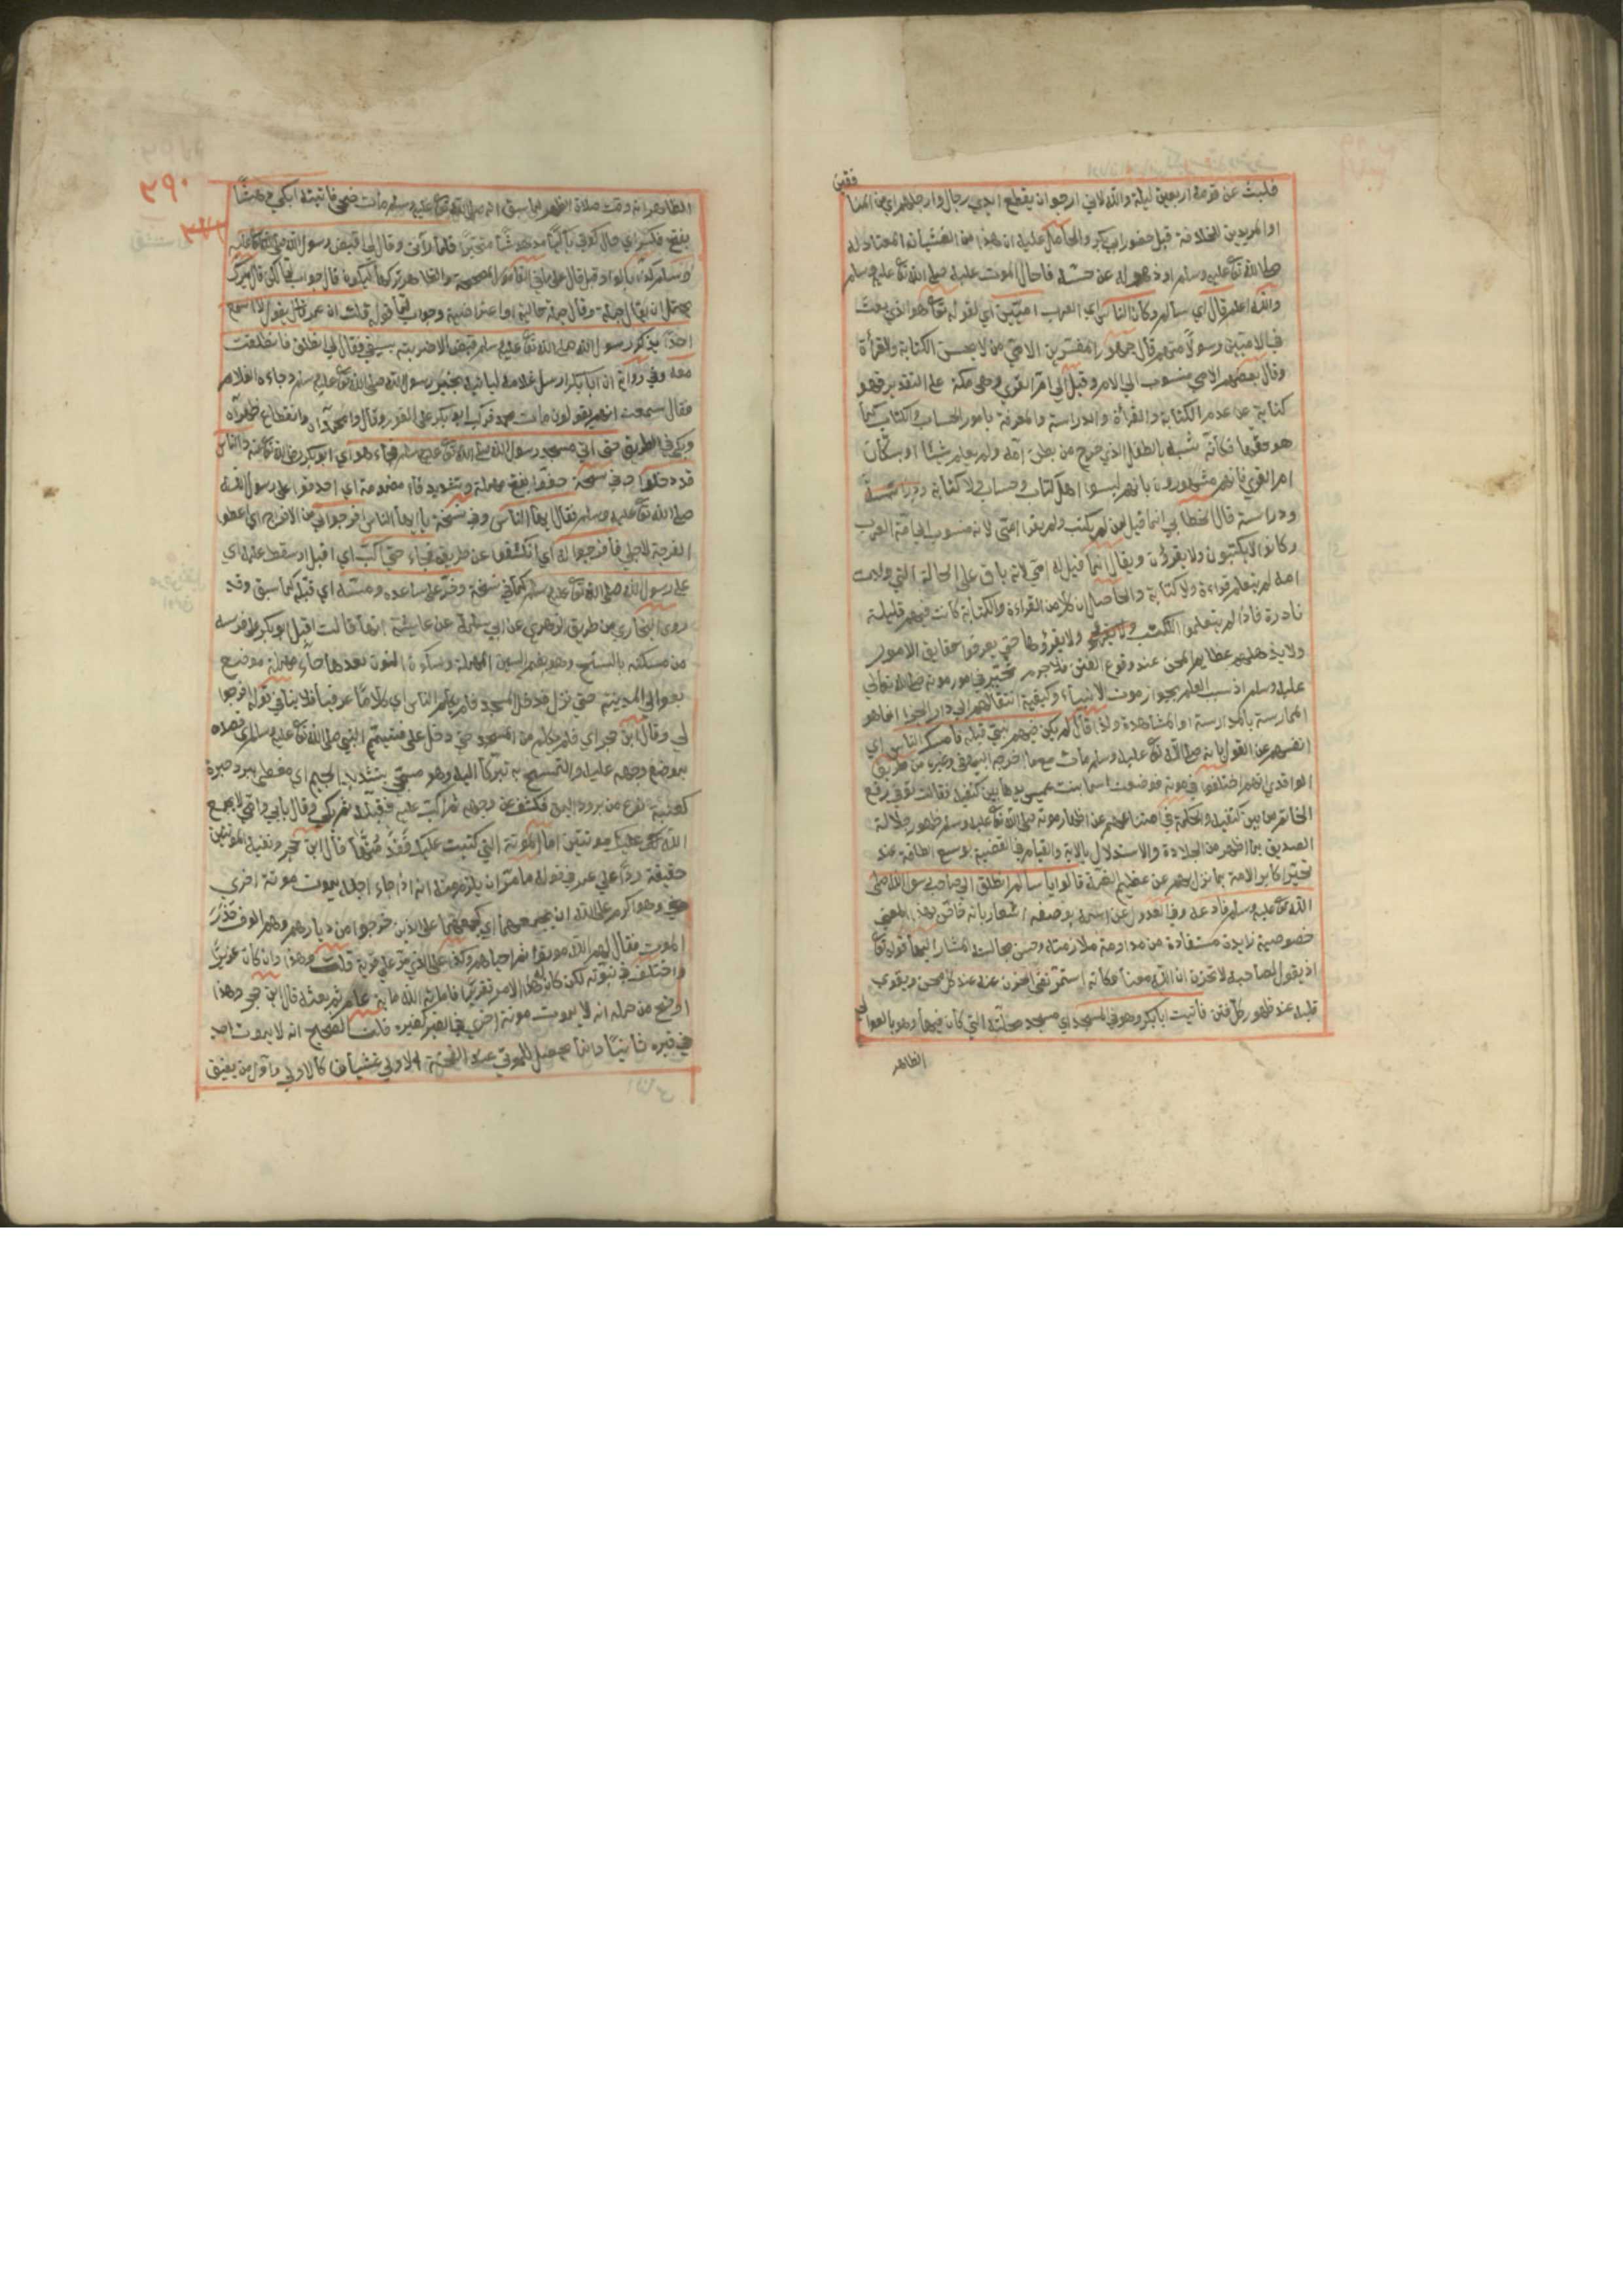 فلبث عن قومه اربعين ليلة والله لاني ارجو ان يقطع ايدي رجال وارجلهم اي من المنا
فقين
او المريدين الخلافة قبل حضور ابي بكر والحامل عليه ان هذا من الغشيان المعتاد له
صلى الله تع عليه وسلم او ذهوله عن حسه فاحال الموت عليه صلى الله تع عليه وسلم
والله اعلم قال اي سالم وكان الناس اي العرب اميين اي لقوله تع هو الذي بعث
في الاميين رسولا منهم قال جمهور المفسرين الامي من لا يحسن الكتابة والقرأة
وقال بعضهم الامي منسوب الى الام وقيل الى ام القرى وهي مكة على التقدير فهو
كناية عن عدم الكتابة والقرأة والدراسة والمعرفة بامور الحساب والكتاب كما
هو حقها فكانه شبه بالطفل الذي خرج من بطن امه ولم يعلم شيئا او بسكان
ام القرى فانهم مشهورون بانهم ليسوا اهل كتاب وحساب لا كتابة
ودراسة قال الخطابي انما قيل لمن لم يكتب ولم يقرا امي لانه منسوب الى امة العرب
وكانوا لا يكتبون ولا يقرؤن ويقال انما قيل له امي لانه باق على الحالة التي ولدت
امه لم يتعلم قراءة ولا كتابة والحاصل ان كلا من القراءة والكتابة كانت فيهم قليلة
نادرة فاذا لم يتعلموا الكتب ولا يقرؤها حتى يعرفوا حقايق الامور
ولا يذهلهم عظايم المحن عند وقوع الفتن فلا جرم تحير في امور موته صلى الله تعالى
عليه وسلم اذ سبب العلم بجواز موت الانبياء وكيفية انتقالهم الى دار الجزاء انما هو
الممارسة بالمدارسة او المشاهدة ولذا قال لم يكن فيهم نبي قبله فامسك الناس اي
انفسهم عن القول بانه صلى الله تع عليه وسلم مات مع ما اخرجه البيهقي وغيره من طريق
الواقدي انهم اختلفوا في موته فوضعت اسما بنت عميس يدها بين كتفيه فقالت توفي رفع
الخاتم من بين كتفيه والحكمة في اظهار موته صلى الله تع عليه وسلم ظهور جلالة
الصديق بما اظهر من الجلادة والاستدلال بالاية والقيام في القضية بوسع الطاقة عند
تحير اكابر الامة بما نزل بهم عن عظيم الغمة قالوا يا سالم انطلق الى صاحب رسول الله صلى
الله تع عليه وسلم فادعه وفي العدول عن اسمه بوصفه اشعار بانه فائق بهذا المعنى
خصوصية زايدة مستفادة من مداومة ملازمته وحسن مجالسته المشار اليها قوله تع
اذ يقول لصاحبه لا تحزن ان الله معنا فكانه استمر نفي الحزن عنه عند كل محن ويقوى
قلبه عند ظهور كل فتن فاتيت ابا بكر وهو في المسجد اي مسجد محلته التي كان فيها وهو بالعوالي
الظاهر
٢٩٠
الظاهر انه وقت صلاة الظهر لما سبق انه صلى الله تع عليه وسلم مات ضحى فاتيته ابكي دهشا
بفتح فكسر اي حال كوني باكيا مدهوشا متحيرا فلما رآني وقال لي اقبض رسول الله صلى الله تع عليه
وسلم بالواو قبل قال على ما في الاصول المصححة والظاهر تركها ليكون قال جواب لما لكن قال ميرك
يحتمل ان يقال جملة وقال جملة حالية او اعتراضية وجواب لما قوله قلت ان عمر قال يقول لا اسمع
احدا يذكر ان رسول الله صلى الله تع عليه وسلم قبض الا ضربته بسيفي فقال لي انطلق فانطلقت
معه وفي رواية ان ابا بكر ارسل غلامه لياتيه بخبر رسول الله صلى الله تع عليه وسلم فجاءه الغلام
فقال سمعت انهم يقولون مات محمد فركب ابو بكر على الفور وقال وا محمداه وا انقطاع ظهراه
وبكى في الطريق حتى اتى مسجد رسول الله صلى الله تع عليه وسلم فجاء هو اي ابو بكر رضي الله تع عنه والناس
قد دخلوا وفي نسخة حفوا بفتح مهملة وتشديد فاء مضمومة اي احدقوا على رسول الله
صلى الله تع عليه وسلم فقال ايها الناس وفي نسخة يا ايها الناس افرجوا لي من الافراج اي اعطوا
الفرجة لاجلي فافرجوا له اي انكشفوا عن طريقه فجاء حتى اكب اي اقبل او سقط عليه اي
على رسول الله صلى الله تع عليه وسلم كما في نسخة وخر على ساعده ومسه اي قبله كما سبق وقد
روى البخاري من طريق الزهري عن ابي سلمة عن عايشة انها قالت اقبل ابو بكر على فرسه
من مسكنه بالسنح وهو بضم السين المهملة وسكون النون بعدها حاء مهملة موضع
بعوالي المدينة حتى نزل فدخل المسجد فلم يكلم الناس اي كلاما عرفيا فلا ينافي قوله افرجوا
لي وقال ابن حجر اي فلم يكلم من في المسجد حتى دخل على فيتيمم النبي صلى الله تع عليه وسلم اي قصده
بوضع وجهه عليه والتمسح به تبركا اليه وهو مسجى بتشديد الجيم اي مغطى ببرد حبرة
كعنبة نوع من برود اليمن فكشف عن وجهه ثم اكب عليه فقبله ثم بكى وقال بابي وامي لا يجمع
الله عليك موتتين اما الموتة التي كتبت عليك فقد متها قال ابن حجر ونفيه الموتتين
حقيقة ردا على عمر في قوله ما مر ان يلزم منه انه اذا جاء اجله يموت موتة اخرى
وهو اكرم على الله ان يجمعهما اي كجمعهما على الذين خرجوا من ديارهم وهم الوف حذر
الموت فقال لهم الله موتوا ثم احياهم وكالذي مر على قرية قلت وهذا وان كان عزيرا
واختلف في نبوته لكن كان هذا الامر تقريرا فاماته الله ماية عام ثم بعثه قال ابن حجر وهذا
اوضح من حمله انه لا يموت موتة اخرى في القبر كغيره قلت الصحيح انه لا يموت احد
في قبره ثانيا وانما يحصل للموتى عند النفخة الاولى غشيان كالاولى واول من يفيق